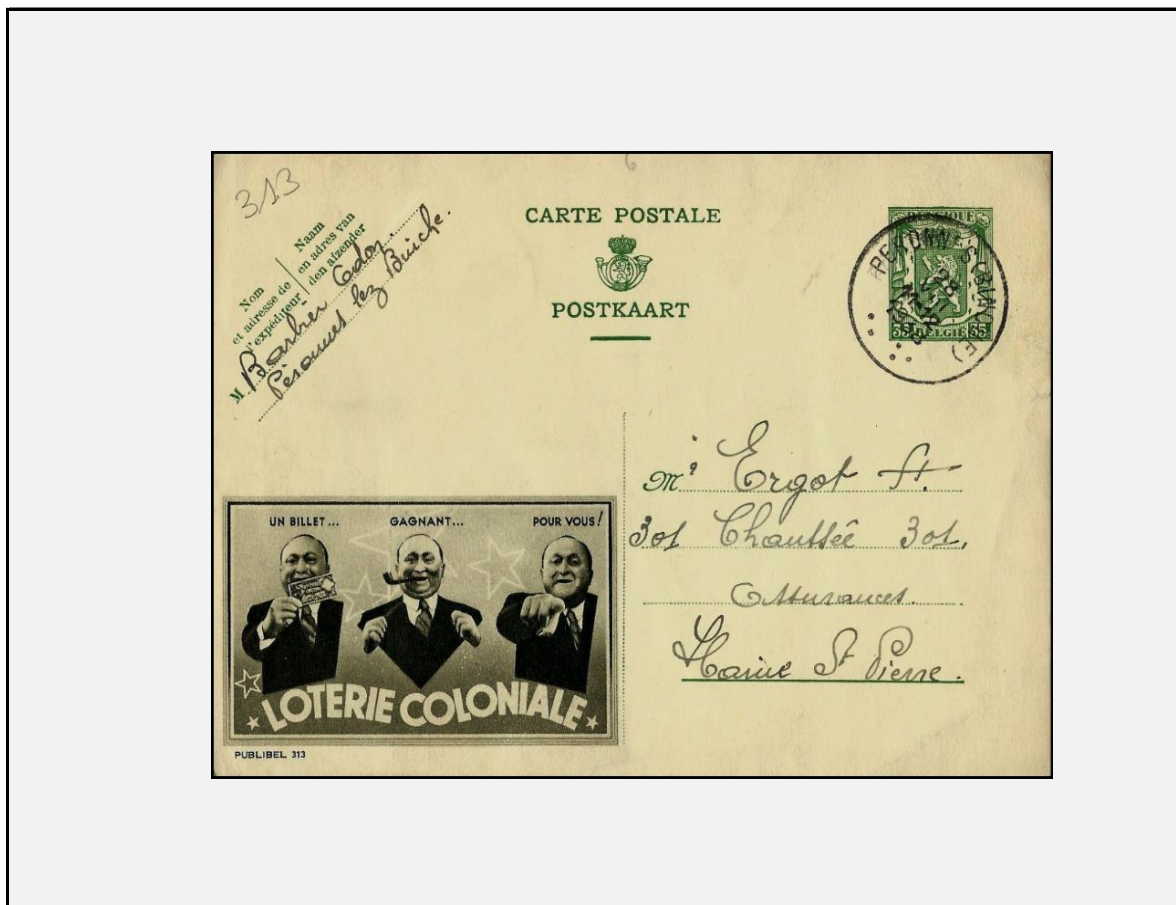 313
Nom
et adresse de
l'expéditeur
Naam
en adres van
den afzender
M Barbier Odon
Péronnes lez Binche.
CARTE POSTALE
POSTKAART
BELGIQUE
35 BELGIE 35
PERONNES (BINCHE)
Mr Ergot St.
301 Chaussée 301,
Assurances.
Haine St Pierre.
UN BILLET...
GAGNANT...
POUR VOUS!
LOTERIE COLONIALE
PUBLIBEL 313